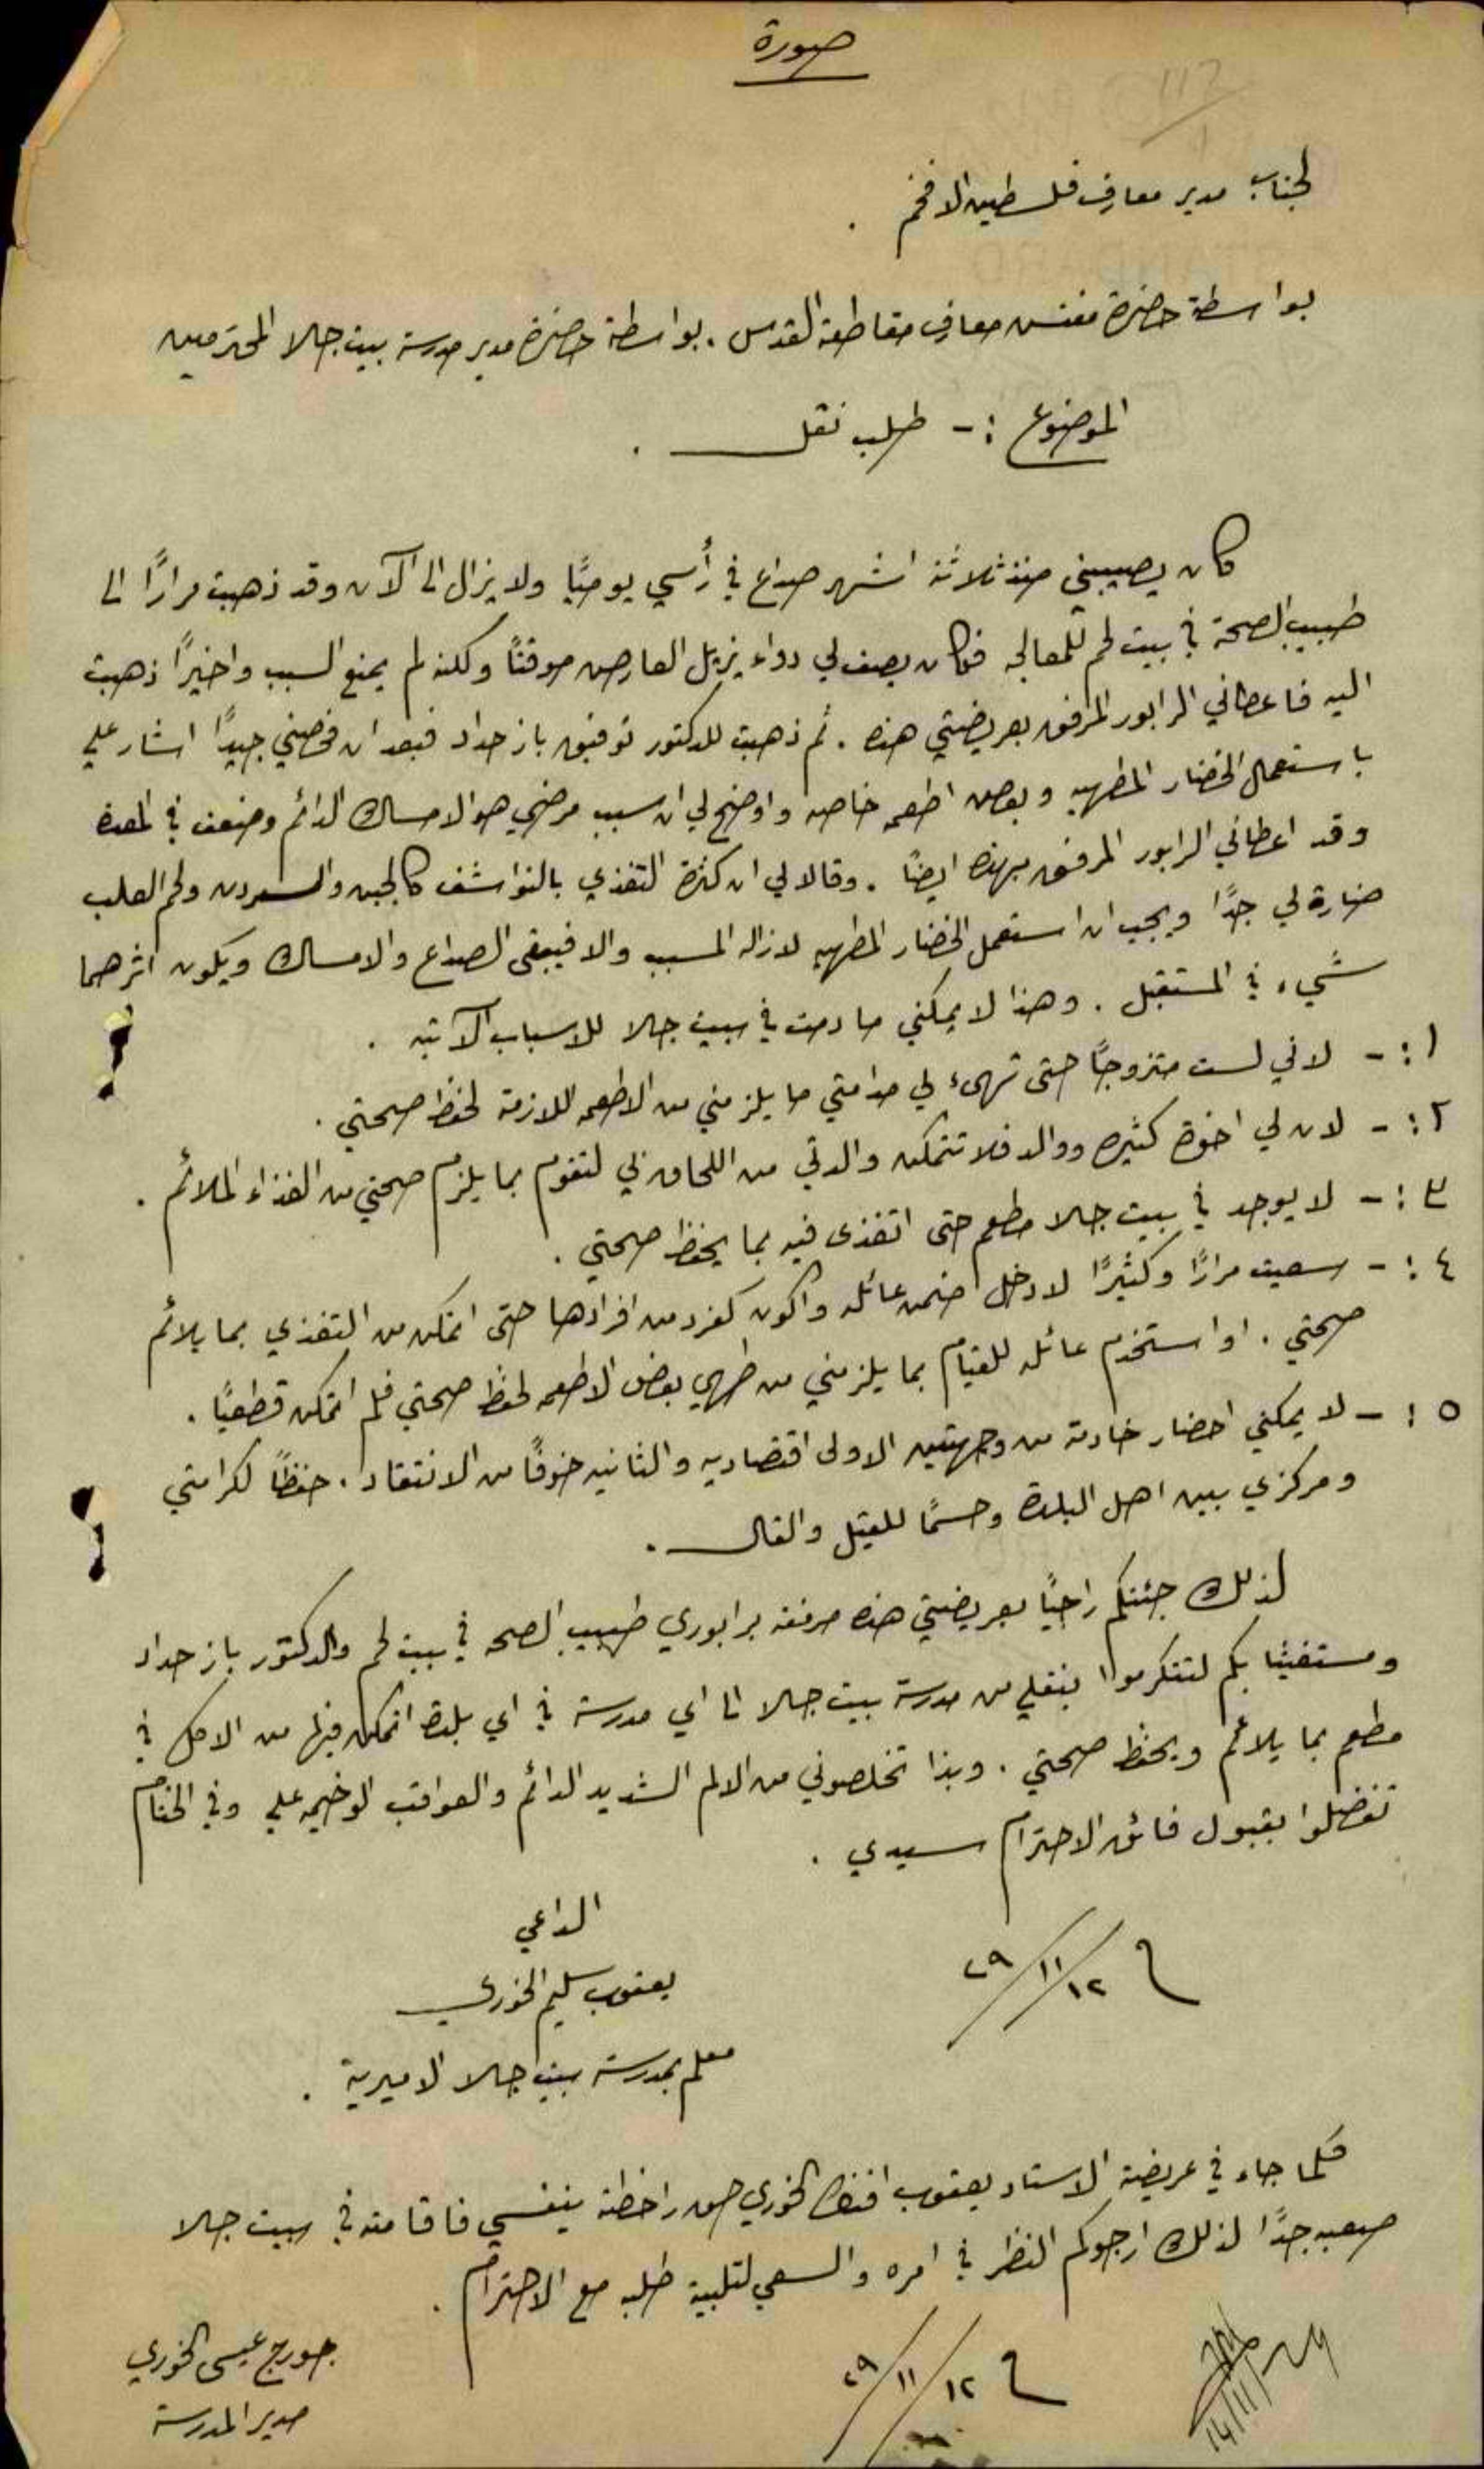 صورة
لجناب مدير معارف فلسطين الافخم .
بواسطة حضرة مفتش معارف مقاطعة القدس . بواسطة حضرة مدير مدرسة بيت جالا المحترمين
الموضوع :- طلب نقل .
كان يصيبني منذ ثلاثة اشهر صداع في رأسي يوميًا ولا يزال الى الآن وقد ذهبت مرارًا الى
طبيب الصحة في بيت لحم للمعالجه فكان يصف لي دواء يزيل العارض موقتًا ولكنه لم يمنع السبب واخيرًا ذهبت
اليه فاعطاني الرابور المرفق بعريضتي هذه . ثم ذهبت للدكتور توفيق باز حداد فبعد ان فحصني جيدًا اشار علي
باستعمال الخضار المطهيه وبعض اطعمه خاصه واوضح لي ان سبب مرضي هو الامساك الدائم وضعف في المعدة
وقد اعطاني الرابور المرفق بهذه ايضًا . وقالا لي ان كثرة التغذي بالنواشف كالجبن والسردين ولحم العلب
ضارة لي جدًا ويجب ان استعمل الخضار المطهيه لازالة المسبب والا فيبقى الصداع والامساك ويكون اثرهما
سيء في المستقبل . وهذا لا يمكنني ما دمت في بيت جالا للاسباب الآتيه .
١ :- لاني لست متزوجًا حتى تهيء لي مدامتي ما يلزمني من الاطعمه اللازمة لحفظ صحتي .
٢ :- لان لي اخوة كثيره ووالد فلا تتمكن والدتي من اللحاق بي لتقوم بما يلزم صحتي من الغذاء الملائم .
٣ :- لا يوجد في بيت جالا مطعم حتى اتغذى فيه بما يحفظ صحتي .
٤ :- سعيت مرارًا وكثيرًا لادخل ضمن عائله واكون كفرد من افرادها حتى اتمكن من التغذي بما يلائم
صحتي . او استخدم عائله للقيام بما يلزمني من طهي بعض الاطعمه لحفظ صحتي فلم اتمكن قطعيًا .
٥ :- لا يمكنني احضار خادمة من وجهتين الاولى اقتصاديه والثانيه خوفًا من الانتقاد . حفظًا لكرامتي
ومركزي بين اهل البلدة وحسمًا للقيل والقال .
لذلك جئتكم راجيًا بعريضتي هذه مرفقه برابوري طبيب الصحه في بيت لحم والدكتور باز حداد
ومستغيثا بكم لتتكرموا بنقلي من مدرسة بيت جالا الى اي مدرسة في اي بلدة اتمكن فيها من الاكل في
مطعم بما يلائم ويحفظ صحتي . وبذا تخلصوني من الالم الشديد الدائم والعواقب الوخيمه علي وفي الختام
تفضلوا بقبول فائق الاحترام سيدي .
الداعي
١٢/١١/٢٩
يعقوب سليم الخوري
معلم بمدرسة بيت جالا الاميرية .
كلما جاء في عريضة الاستاد يعقوب افندي الخوري حق راخطته بنفسي فاقامته في بيت جالا
صعبه جدًا لذلك ارجوكم النظر في امره والسعي لتلبية طلبه مع الاحترام .
١٢/١١/٢٩
جورج عيسى الخوري
مدير المدرسة
14/11/29